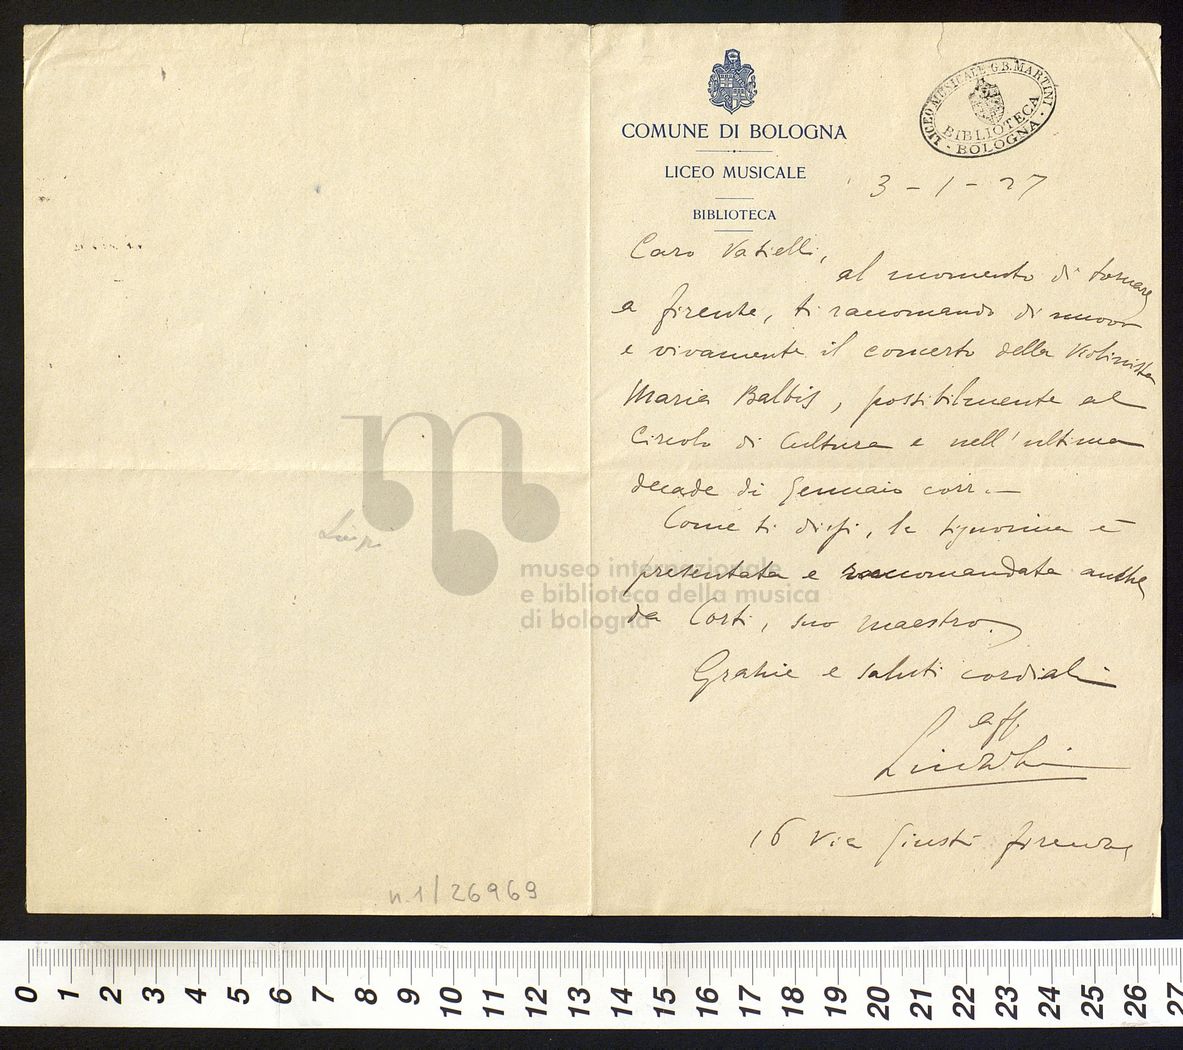 COMUNE DI BOLOGNA
LICEO MUSICALE
BIBLIOTECA
LICEO MUSICALE G.B. MARTINI
BIBLIOTECA
- BOLOGNA -
3 - 1 - 27
Caro Vatielli,
al momento di tornare
a Firenze, ti raccomando di nuovo
e vivamente il concerto della violinista
Maria Balbis, possibilmente al
Circolo di Cultura e nell'ultima
decade di Gennaio corr. —
Come ti dissi, la signorina è
presentata e raccomandata anche
da Corti, suo maestro.
Grazie e saluti cordiali
aff.
16 Via Giusti Firenze
n. 1/26969
museo internazionale
e biblioteca della musica
di bologna
0 1 2 3 4 5 6 7 8 9 10 11 12 13 14 15 16 17 18 19 20 21 22 23 24 25 26 27